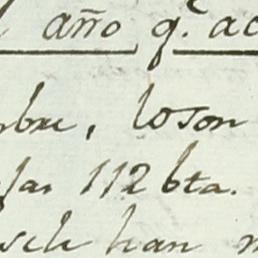 año q.ᵉ ac
bre, loson
las 112 bta.
han